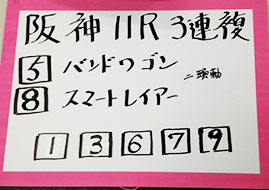 阪神11R 3連複
5 バンドワゴン
二頭軸
8 スマートレイアー
1 3 6 7 9